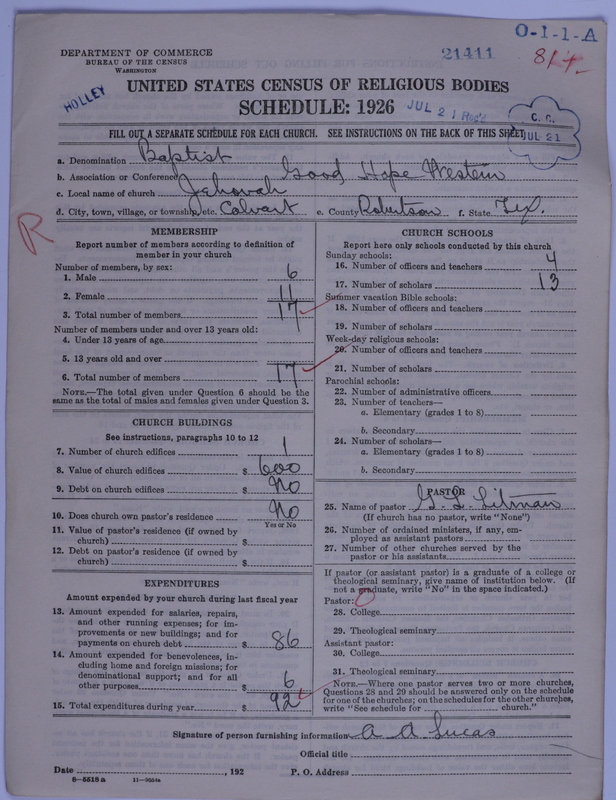 O-1-1-A
DEPARTMENT OF COMMERCE
BUREAU OF THE CENSUS
WASHINGTON
21411
HOLLEY
UNITED STATES CENSUS OF RELIGIOUS BODIES
SCHEDULE: 1926
JUL 21 Rec'd
C. C.
JUL 21
FILL OUT A SEPARATE SCHEDULE FOR EACH CHURCH. SEE INSTRUCTIONS ON THE BACK OF THIS SHEET
a. Denomination Baptist
b. Association or Conference Good Hope Western
c. Local name of church Jehovah
d. City, town, village, or township, etc. Calvart e. County Robertson f. State Tex.
R
MEMBERSHIP
Report number of members according to definition of
member in your church
Number of members, by sex:
1. Male 6
2. Female 11
3. Total number of members 17
Number of members under and over 13 years old:
4. Under 13 years of age
5. 13 years old and over
6. Total number of members 17
NOTE.—The total given under Question 6 should be the
same as the total of males and females given under Question 3.
CHURCH BUILDINGS
See instructions, paragraphs 10 to 12
7. Number of church edifices 1
8. Value of church edifices $ 600
9. Debt on church edifices $ No
10. Does church own pastor's residence No
Yes or No
11. Value of pastor's residence (if owned by
church) $
12. Debt on pastor's residence (if owned by
church) $
EXPENDITURES
Amount expended by your church during last fiscal year
13. Amount expended for salaries, repairs,
and other running expenses; for im-
provements or new buildings; and for
payments on church debt $ 86
14. Amount expended for benevolences, in-
cluding home and foreign missions; for
denominational support; and for all
other purposes $ 6
15. Total expenditures during year $ 92
CHURCH SCHOOLS
Report here only schools conducted by this church
Sunday schools:
16. Number of officers and teachers 4
17. Number of scholars 13
Summer vacation Bible schools:
18. Number of officers and teachers
19. Number of scholars
Week-day religious schools:
20. Number of officers and teachers
21. Number of scholars
Parochial schools:
22. Number of administrative officers
23. Number of teachers—
a. Elementary (grades 1 to 8)
b. Secondary
24. Number of scholars—
a. Elementary (grades 1 to 8)
b. Secondary
PASTOR
25. Name of pastor
(If church has no pastor, write "None")
26. Number of ordained ministers, if any, em-
ployed as assistant pastors
27. Number of other churches served by the
pastor or his assistants
If pastor (or assistant pastor) is a graduate of a college or
theological seminary, give name of institution below. (If
not a graduate, write "No" in the space indicated.)
Pastor: 0
28. College
29. Theological seminary
Assistant pastor:
30. College
31. Theological seminary
NOTE.—Where one pastor serves two or more churches,
Questions 28 and 29 should be answered only on the schedule
for one of the churches; on the schedules for the other churches,
write "See schedule for church."
Signature of person furnishing information A A Lucas
Official title
Date , 192 P. O. Address
8-5518a 11-9554a